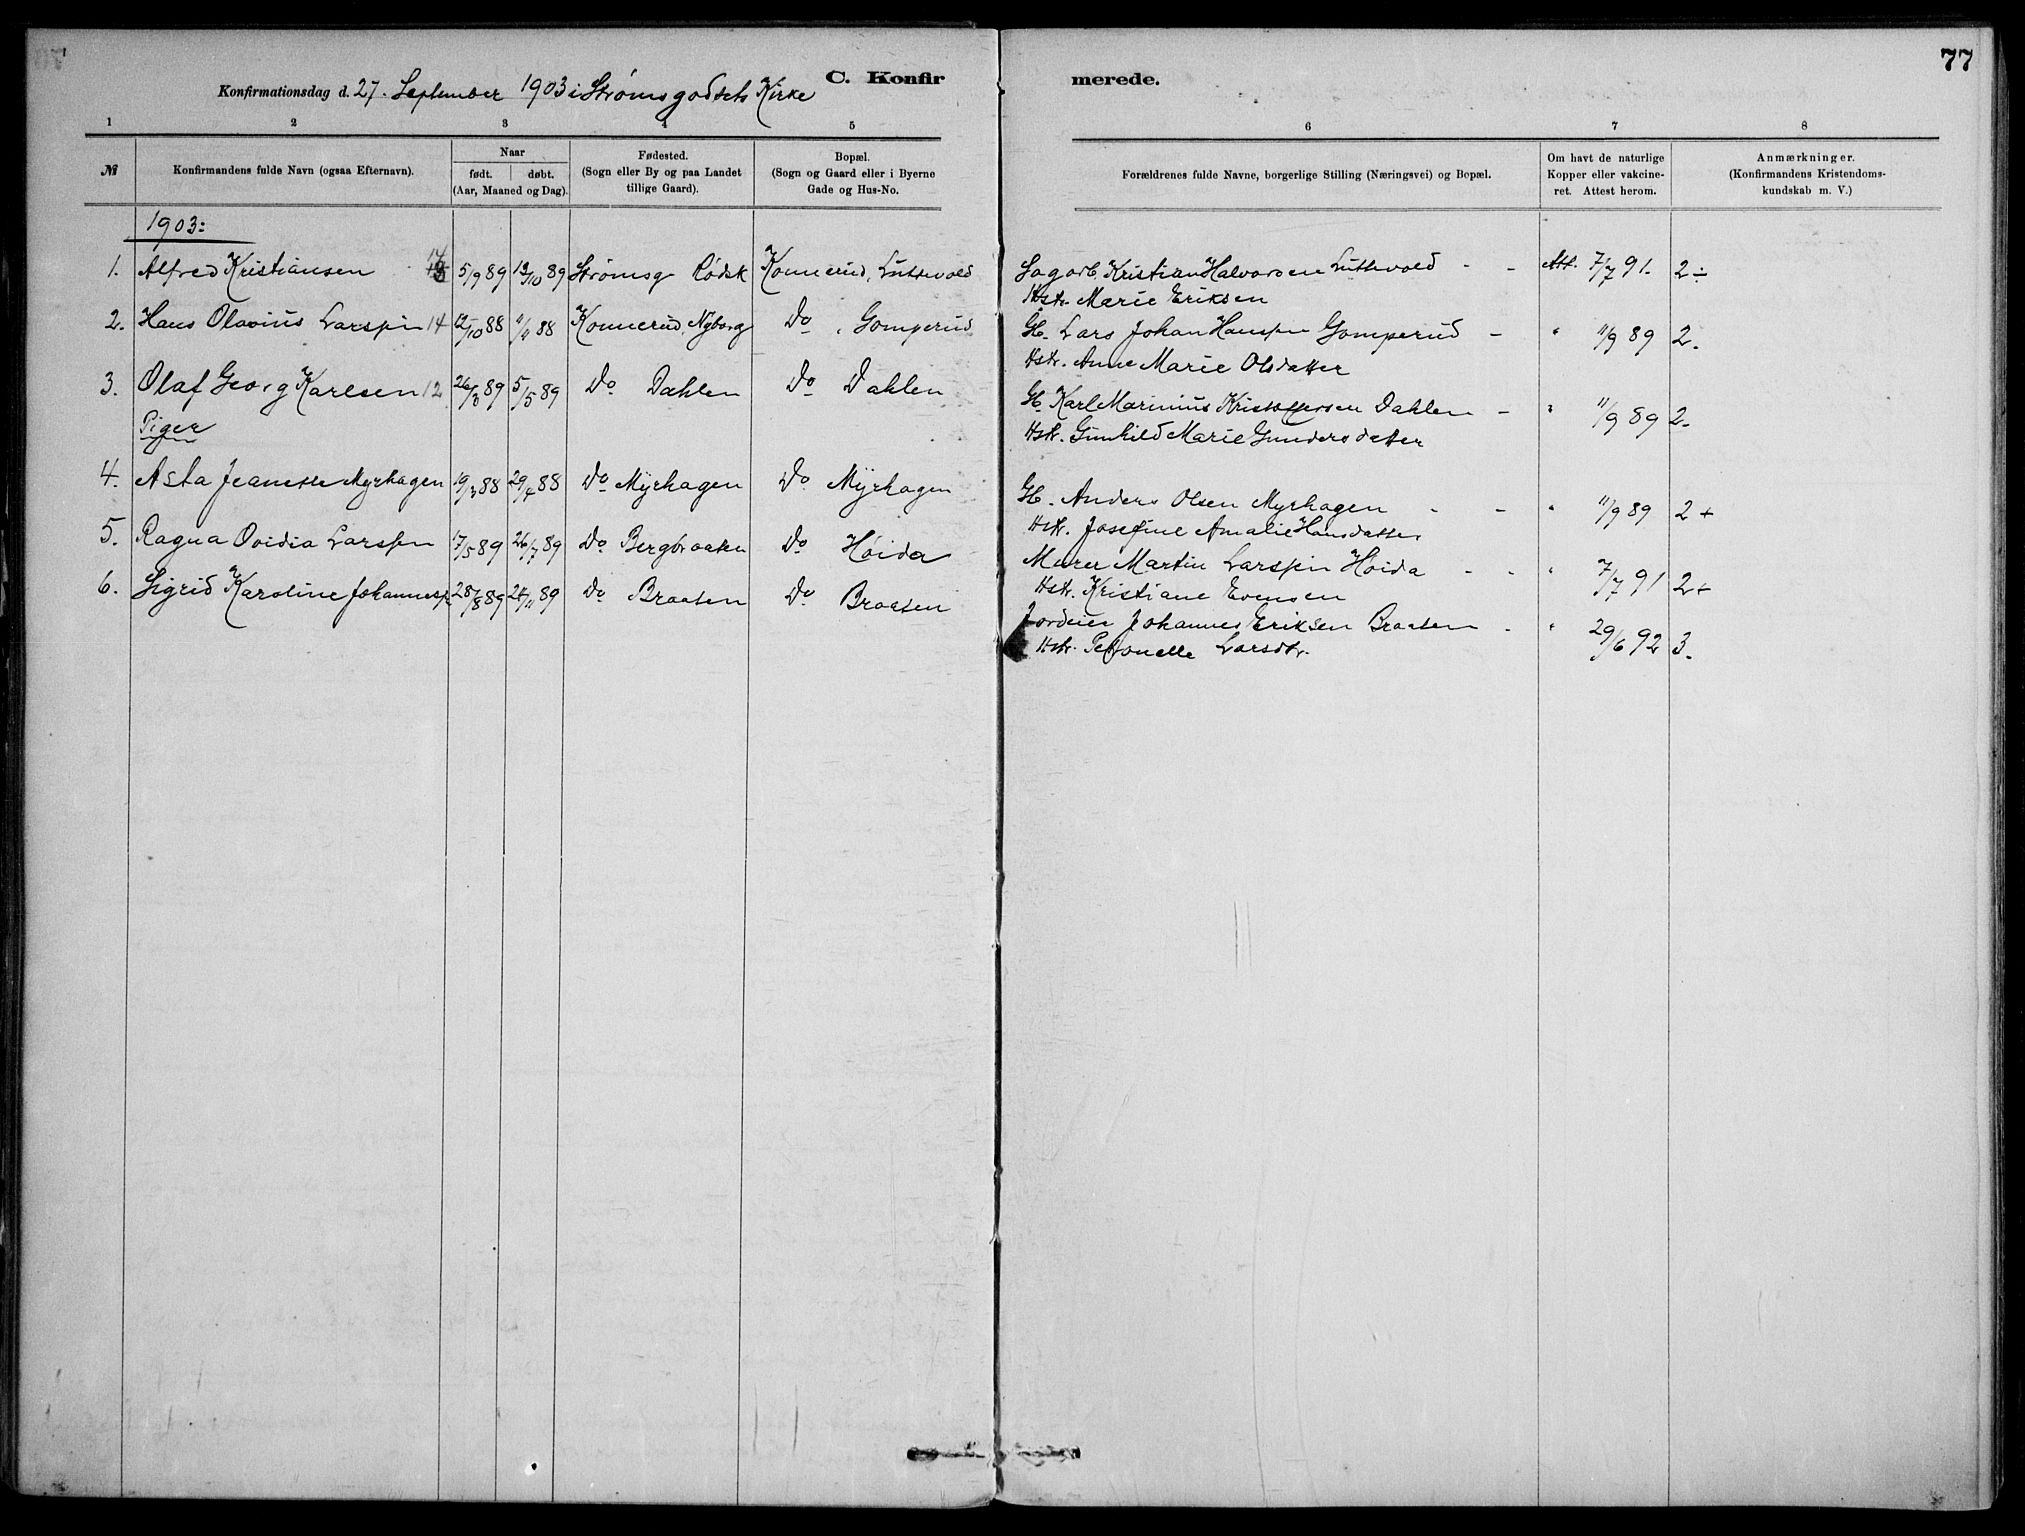 77
C. Konfirmerede.
Konfirmationsdag d. 27. September 1903 i Strømsgodsets Kirke
1 2 3 4 5 6 7 8
№ Konfirmandens fulde Navn (ogsaa Efternavn). Naar født. døbt. (Aar, Maaned og Dag). Fødested. (Sogn eller By og paa Landet tillige Gaard). Bopæl. (Sogn og Gaard eller i Byerne Gade og Hus-No. Forældrenes fulde Navne, borgerlige Stilling (Næringsvei) og Bopæl. Om havt de naturlige Kopper eller vakcineret. Attest herom. Anmærkninger. (Konfirmandens Kristendomskundskab m. V.)
1903:
1. Alfred Kristiansen 14 5/9 89 13/10 89 Strømsg Konnerud, Luttevold Sagarb. Kristian Halvorsen Luttevold - - Att. 7/7 91. 2÷
Hstr. Marie Eriksen
2. Hans Olavius Larssen 14 12/10 88 11/11 88 Konnerud, Nyborg Do , Gomperud G. Lars Johan Hanssen Gomperud - " 11/9 89 2.
Hstr. Anne Marie Olsdatter
3. Olaf Georg Karlsen 12 26/3 89 5/5 89 Do Dahlen Do Dahlen G. Karl Marinius Kristoffersen Dahlen - " 11/9 89 2.
Hstr. Gunhild Marie Gundersdatter
Piger
4. Asta Jeanette Myrhagen 19/3 88 29/4 88 Do Myrhagen Do Myrhagen G. Anders Olsen Myrhagen - - " 11/9 89 2+
Hstr. Josefine Amalie Hansdatter
5. Ragna Ovidia Larssen 17/5 89 26/7 89 Do Bergbraaten Do Høida Murer Martin Larssen Høida - - " 7/7 91 2+
Hstr. Kristiane Evensen
6. Sigrid Karoline Johanness. 28/8 89 24/11 89 Do Braaten Do Braaten Jordeier Johannes Eriksen Braaten - " 29/6 92 3.
Hstr. Petronelle Larsdtr.